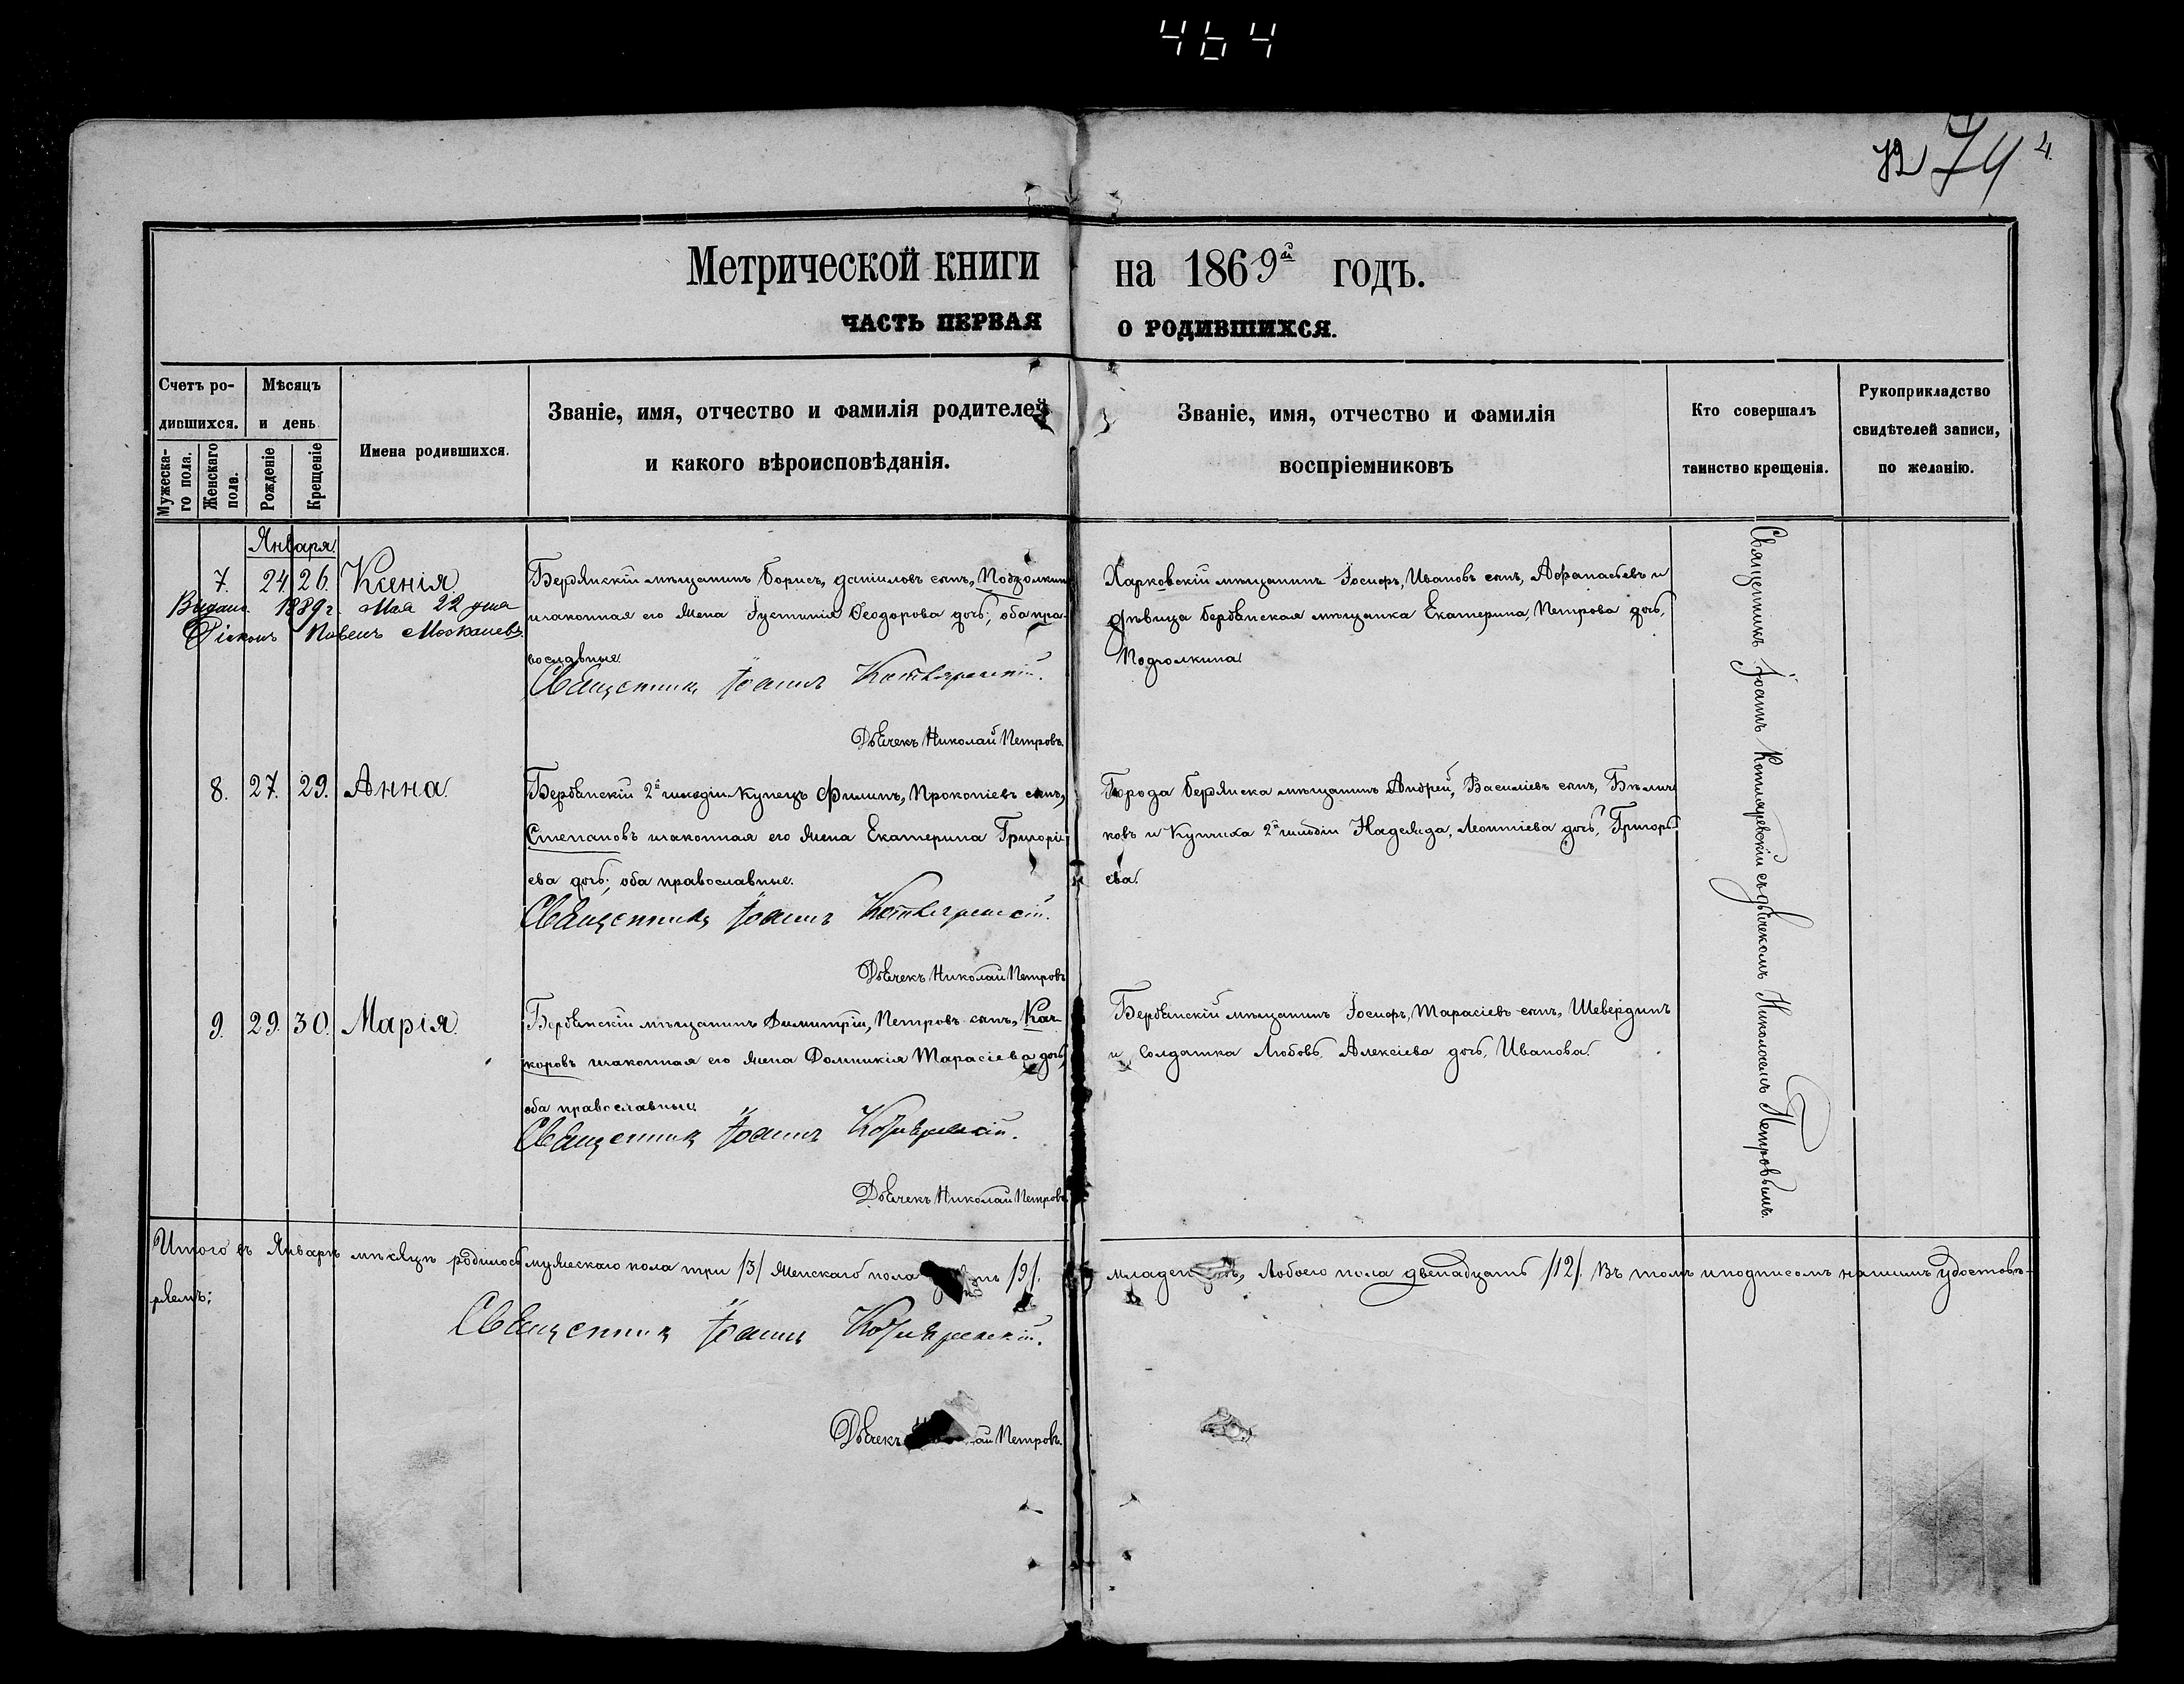 464
72 74 4.
Метрической книги на 1869й годъ.
ЧАСТЬ ПЕРВАЯ О РОДИВШИХСЯ.
Счетъ родившихся.
Мужескаго пола.
Женскаго пола.
Мѣсяцъ и день
Рожденіе
Крещеніе
Имена родившихся.
Званіе, имя, отчество и фамилія родителей
и какого вѣроисповѣданія.
Званіе, имя, отчество и фамилія
воспріемниковъ
Кто совершалъ
таинство крещенія.
Рукоприкладство
свидѣтелей записи,
по желанію.
Января
7. 24. 26. Ксенія.
Выдано. 1889 г. Мая 22 дня
Павелъ
Бердянскій мѣщанинъ Борисъ, Даніиловъ сынъ, Подзолкинъ
и законная его жена Іустинія Ѳеодорова дочь; оба пра-
вославные.
Священникъ Іоаннъ Котляревскій.
Дьячекъ Николай Петровъ.
Харковскій мѣщанинъ Іосифъ, Ивановъ сынъ, Аѳанасьевъ и
дѣвица бердянская мѣщанка Екатерина, Петрова дочь,
Подзолкина.
Священникъ Іоаннъ Котляревскій съ дьячекомъ Николаемъ Петровымъ.
8. 27. 29. Анна.
Бердянскій 2й гильдіи купецъ Филипъ, Прокопіевъ сынъ,
Степановъ и законная его жена Екатерина Григорі-
ева дочь; оба православные.
Священникъ Іоаннъ Котляревскій.
Дьячекъ Николай Петровъ
Города бердянска мѣщанинъ Андрей, Василіевъ сынъ, Бѣли
ковъ и Купчиха 2й гильдіи Надежда, Леонтіева дочь, Григорь
ева.
9. 29. 30. Марія.
Бердянскій мѣщанинъ Димитрій, Петровъ сынъ, Кач-
коровъ и законная его жена Домникія Тарасіева дочь,
оба православные
Священникъ Іоаннъ Котляревскій.
Дьячекъ Николай Петровъ.
Бердянскій мѣщанинъ Іосифъ, Тарасіевъ сынъ, Шевердинъ
и Солдатка Любовь, Алексіева дочь, Иванова.
Итого въ Январѣ мѣсяцѣ родилось мужескаго пола три /3/ женскаго пола /9/. младен обоего пола двенадцать /12/. Въ томъ и подписомъ нашимъ удостовѣ-
ряемъ:
Священникъ Іоаннъ Котляревскій.
Дьячекъ Петровъ.